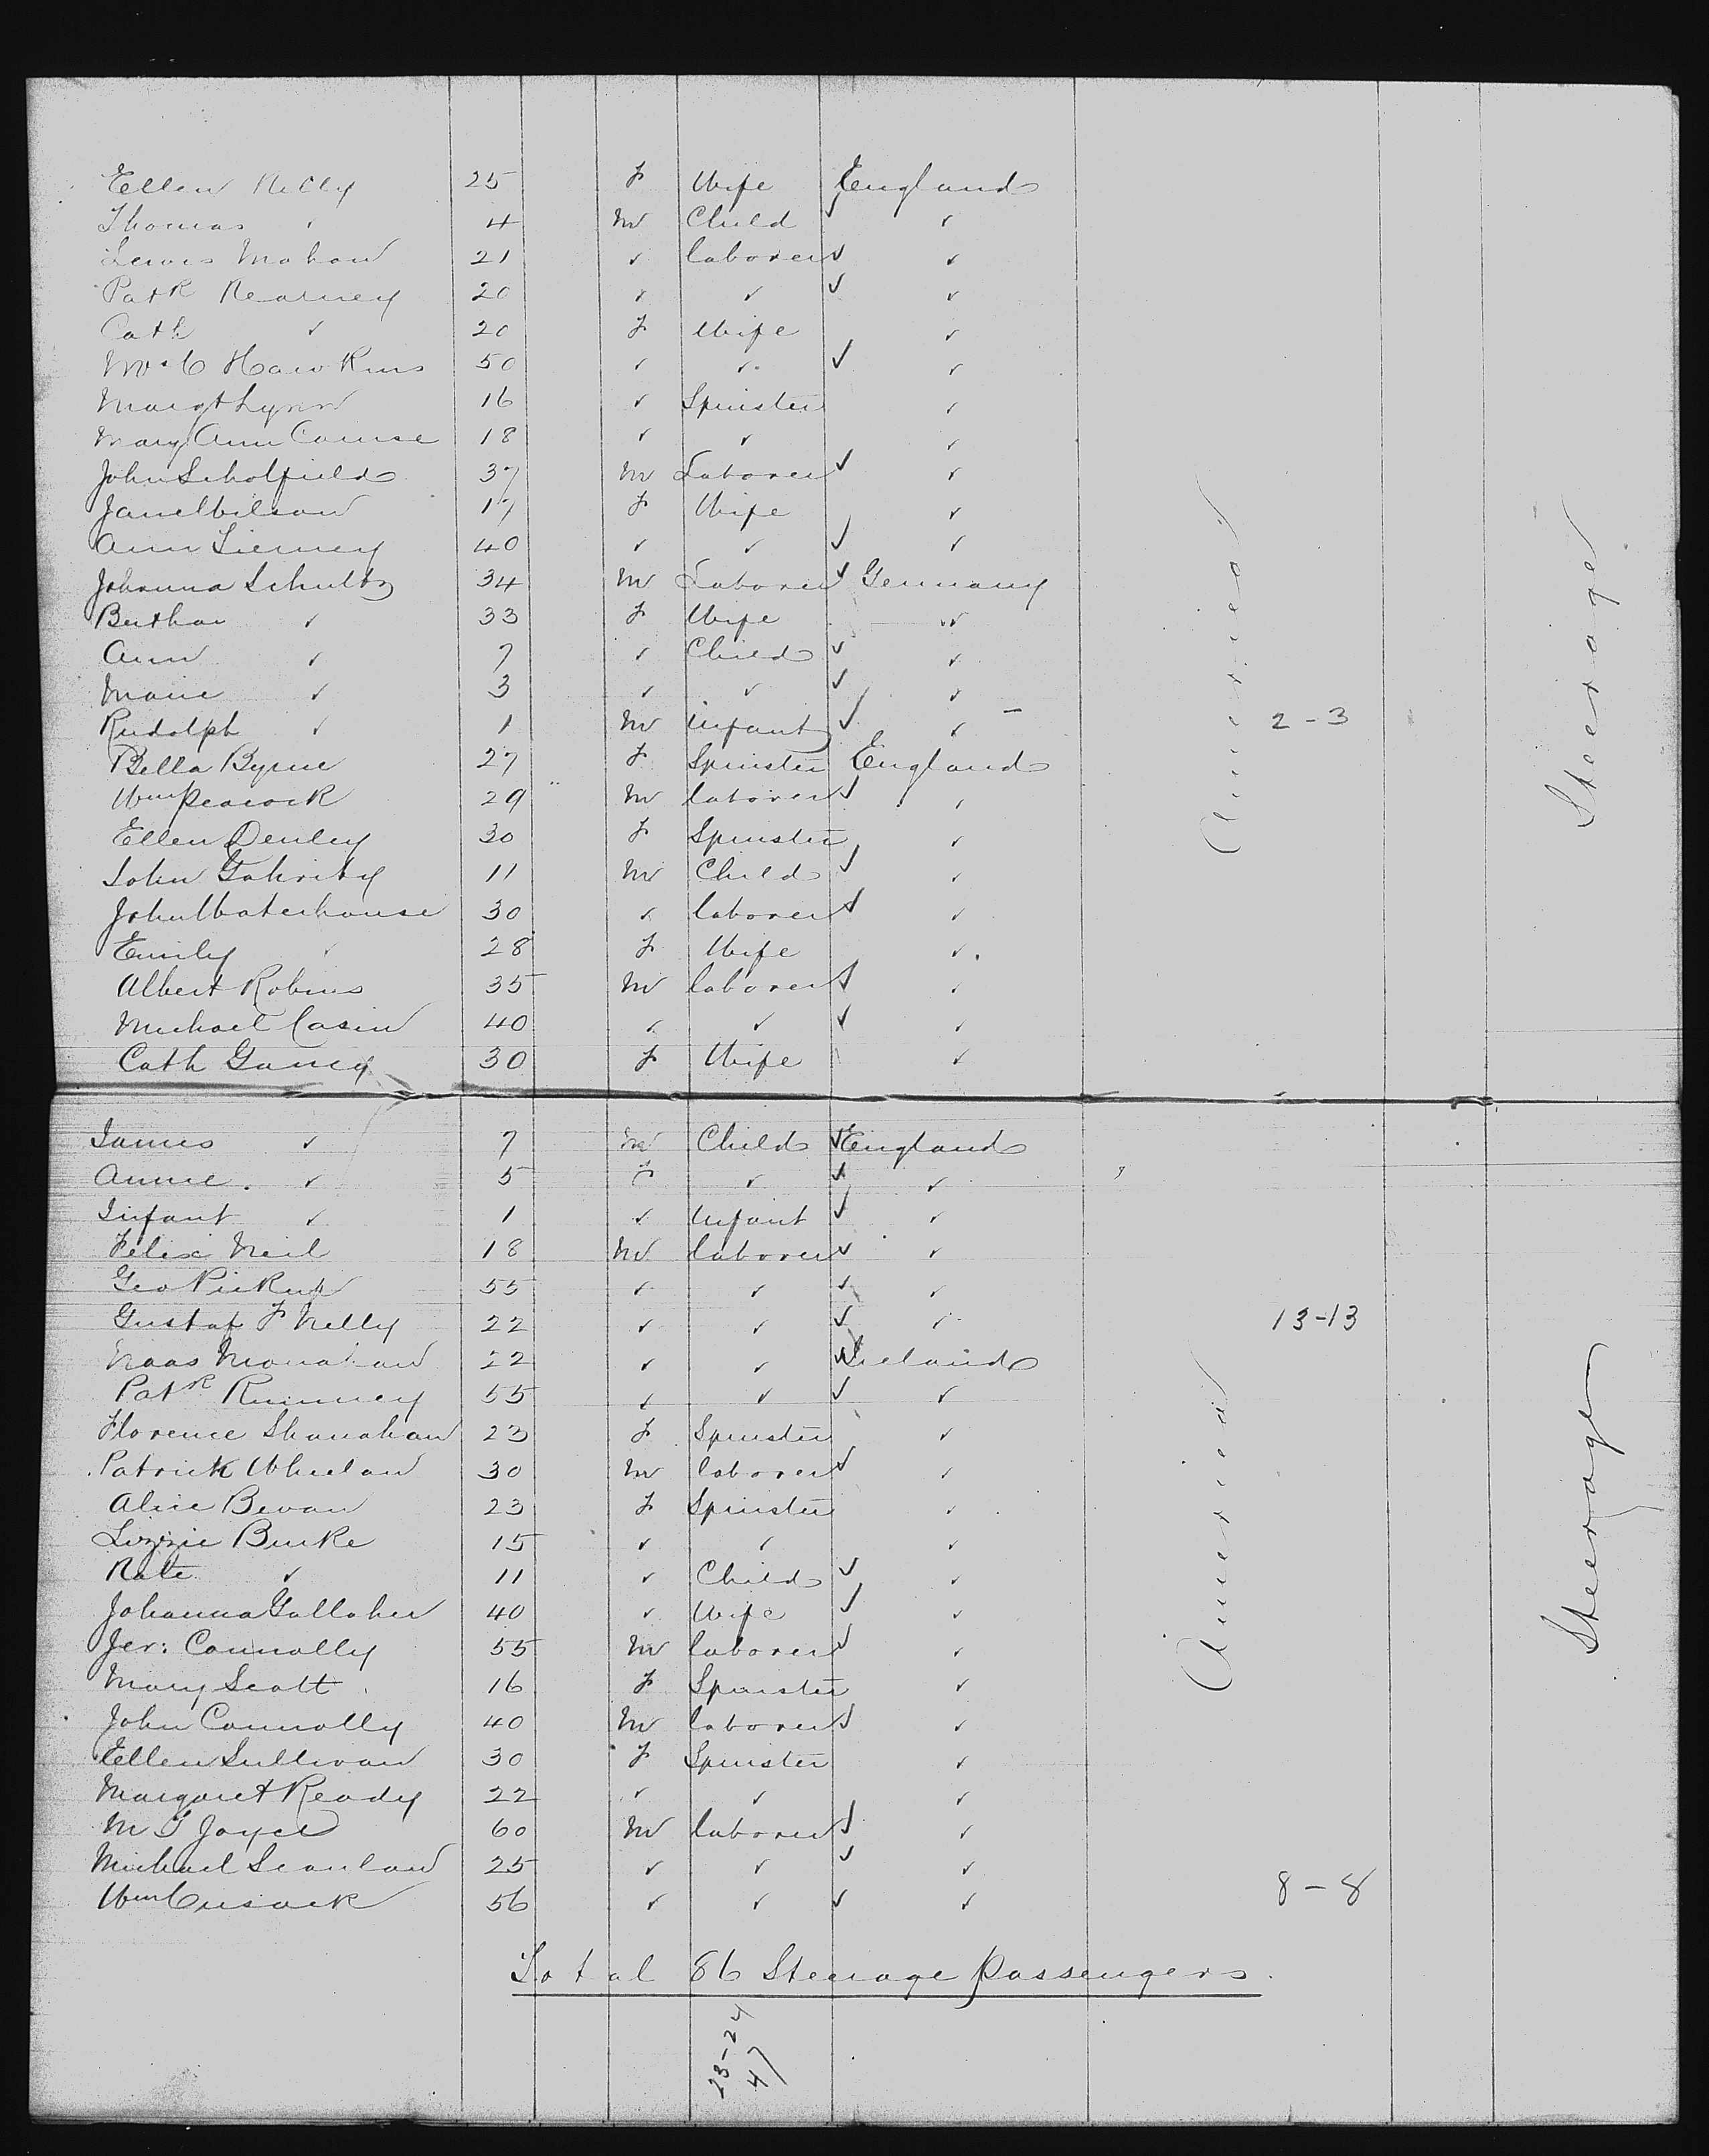 Ellen Kelly 25 F Wife England
Thomas " 4 M Child ✓ "
Lewis Mahon 21 " laborer ✓ "
Patk Kearney 20 " " ✓ "
Cath " 20 F Wife "
Mrs C Hawkins 50 " " ✓ "
Margt Lynn 16 " Spinster "
Mary Ann Course 18 " " "
John Scholfield 37 M Laborer ✓ "
Jane Wilson 17 F Wife "
Ann Tierney 40 " " ✓ "
Johanna Schultz 34 M Laborer ✓ Germany
Bertha " 33 F Wife "
Ann " 7 " Child ✓ "
Marie " 3 " " ✓ "
Rudolph " 1 M Infant ✓ " – 2-3
Bella Byrne 27 F Spinster England
Wm Peacock 29 M laborer ✓ "
Ellen Denley 30 F Spinster "
John 11 M Child ✓ "
John Waterhouse 30 " laborer ✓ "
Emily " 28 F Wife "
Albert Robins 35 M laborer ✓ "
Michael Casin 40 " " ✓ "
Cath Gancy 30 F Wife "
America
Steerage
James " 7 M Child ✓ England
Annie " 5 F " ✓ "
Infant " 1 " Infant ✓ "
Felix Neil 18 M laborer ✓ "
Geo Pickup 55 " " ✓ "
Gustaf F Nelly 22 " " ✓ " 13-13
Monahan 22 " " ✓ Ireland
Patk Kimmey 55 " " ✓ "
Florence Shanahan 23 F Spinster "
Patrick Whelan 30 M laborer ✓ "
Alice Bevan 23 F Spinster "
Lizzie Burke 15 " " "
Kate " 11 " Child ✓ "
Johanna Gallaher 40 " Wife ✓ "
Jer: Connolly 55 M laborer ✓ "
Mary Scott 16 F Spinster "
John Connolly 40 M laborer ✓ "
Ellen Sullivan 30 F Spinster "
Margaret Ready 22 " " "
M J Joyce 60 M laborer ✓ "
Michael Scanlan 25 " " ✓ "
Wm Cusack 56 " " ✓ " 8-8
America
Steerage
Total 86 Steerage Passengers
23-24
47